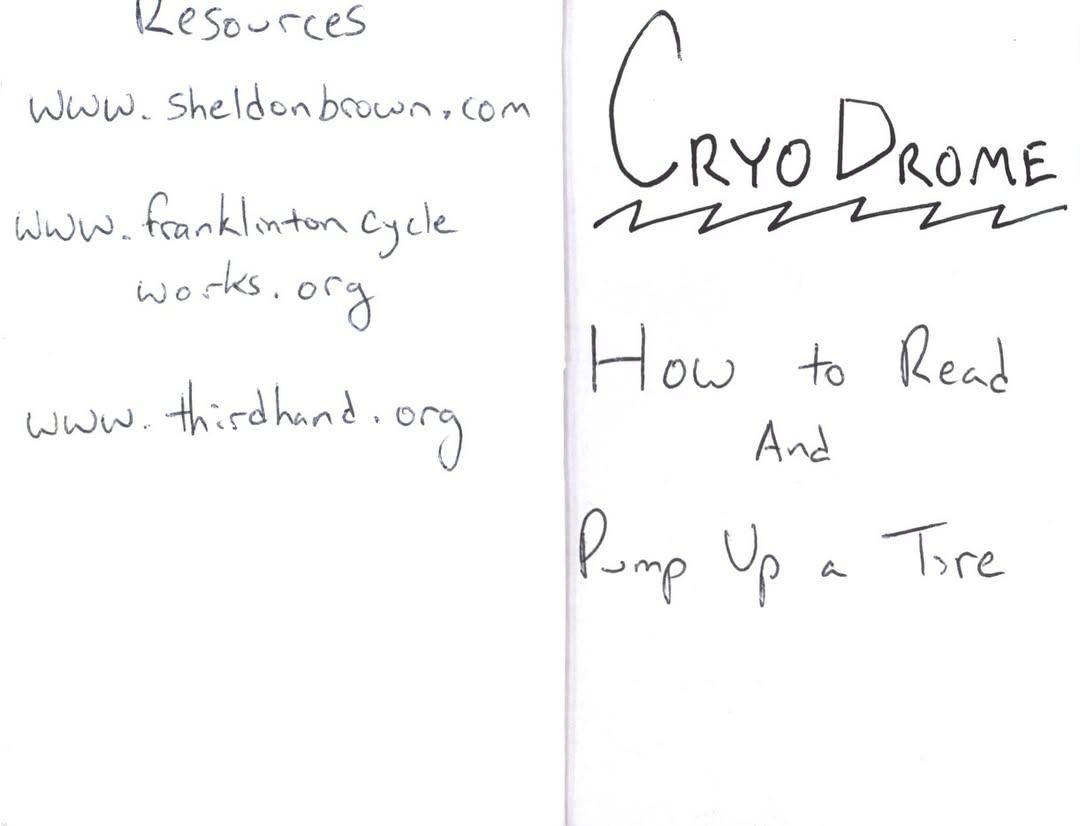 Resources
www.sheldonbrown.com
www.franklintoncycle
works.org
www.thirdhand.org
CRYODROME
How to Read
And
Pump Up a Tire